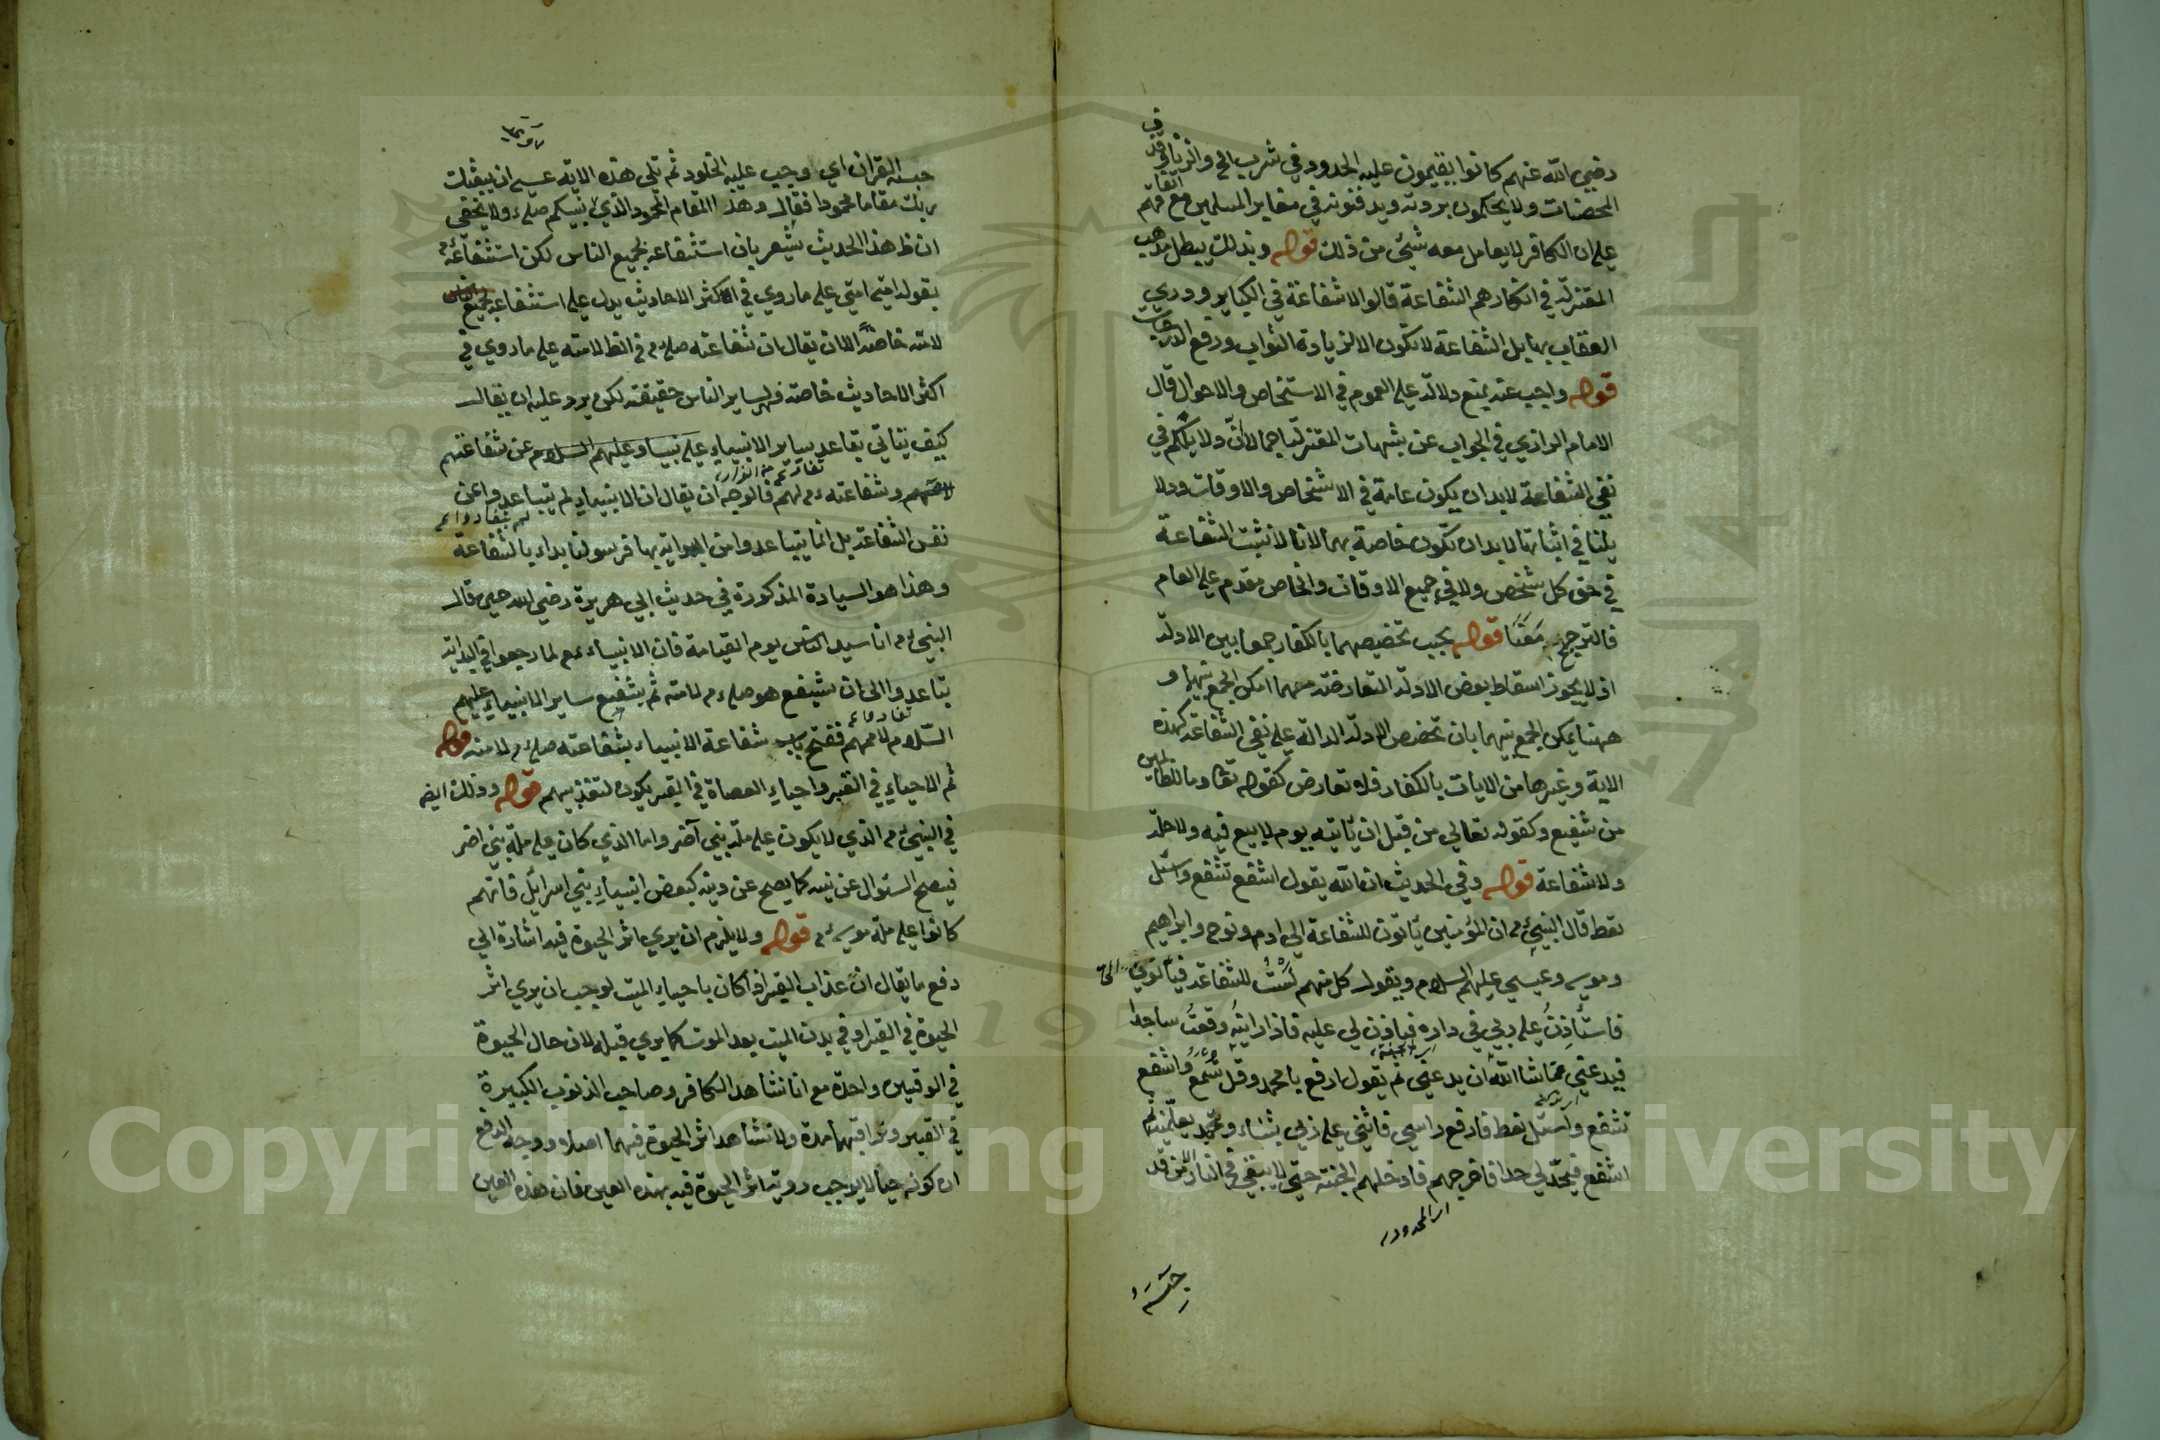 رضي الله عنهم كانوا يقيمون عليه الحدود في شرب الخمر والزنا وقذف
المحصنات ولا يحكمون بردته ويدفنونه في مقابر المسلمين مع اتفاقهم
على ان الكافر لا يعامل معه شيئ من ذلك قوله وبذلك يبطل مذهب
المعتزلة في انكارهم الشفاعة قالوا لا شفاعة في الكبائر ودرئ
العقاب بها بل الشفاعة لا تكون الا لزيادة الثواب ورفع الدرجات
قوله واجيب عنه بمنع دلالته على العموم في الاشخاص والاحوال قال
الامام الرازي في الجواب عن شبهات المعتزلة اجمالا ان دلايلكم في
نفي الشفاعة لا بد ان يكون عامة في الاشخاص والاوقات ودلا
يلنا في اثباتها لا بد ان تكون خاصة بهما لانا لا نثبت الشفاعة
في حق كل شخص ولا في جميع الاوقات والخاص مقدم على العام
فالترجيح معنا قوله يجب تخصيصها بالكفار جمعا بين الادلة
اذ لا يجوز اسقاط بعض الادلة المتعارضة مهما امكن الجمع بينها و
ههنا يمكن الجمع بينهما بان تخصص الادلة الدالة على نفي الشفاعة كهذه
الاية وغيرها من الايات بالكفار فلا تعارض كقوله تعا وما للظالمين
من شفيع وكقوله تعالى من قبل ان ياتيه يوم لا بيع فيه ولا خلة
ولا شفاعة قوله وفي الحديث ان الله يقول اشفع تشفع واسئل
تعط قال النبي عم ان المؤمنين ياتون للشفاعة الى ادم ونوح وابراهيم
وموسى وعيسى عليهم السلام ويقول كل منهم لَسْتُ للشفاعة فياتوني
فاستأذِنُ على ربي في داره فيأذن لي عليه فاذا رايتُه وقعتُ ساجدا
فيدعني ما شا الله ان يدعني ثم يقول ارفع يا محمد وقل تُسْمَعْ واشفع
تشفع واسئل تعط فارفع راسي فاثني على ربي بثناء وتحميد يعلمنيه ثم
اشفع فيحد لي حدا فاخرجهم فادخلهم الجنة حتى لا يبقى في النار الا من قد
اى المحدود
حبسه
حبسه القران اي وجب عليه الخلود ثم تلى هذه الاية عسى ان يبعثك
ربك مقاما محمودا فقال وهذا المقام المحمود الذي نبيكم صلعم ولا يخفى
ان ظ هذا الحديث يُشعر بان استشفاعه لجميع الناس لكن استشفاعه عم
بقوله امتي امتي على ما روي في اكثر الاحاديث يدل على استشفاعه
لامته خاصة الا ان يقال ان شفاعته صلعم في الظ لامته على ما روي في
اكثر الاحاديث خاصة ولساير الناس حقيقة لكن يرد عليه ان يقال
كيف يتأتى تباعد ساير الانبياء على نبينا وعليهم السلام عن شفاعتهم
وشفاعته عم لهم فالوجه ان يقال ان الانبياء لم يتباعدوا عن
نفس الشفاعة بل انما يتباعدوا من البداية بها فرسولنا بداء بالشفاعة
وهذا هو السيادة المذكورة في حديث ابي هريرة رضي الله حيث قال
النبي عم انا سيد الناس يوم القيامة فان الانبياء عم لما رجعوا في البداية
تباعدوا الى ان يشفع هو صلعم لامته ثم يشفع ساير الانبياء عليهم
السلام لاممهم ففتح باب شفاعة الانبياء بشفاعته صلعم لامته قوله
ثم الاحياء في القبر واحياء العصاة في القبر يكون لتعذيبهم قوله وذلك ايضا
في النبي عم الذي لا يكون على ملة نبي آخر واما الذي كان على ملة نبي اخر
فيصح السئوال عن نبيه كما يصح عن دينه كبعض انبياء بني اسرائل فانهم
كانوا على ملة موسى عم قوله ولا يلزم ان يري اثر الحيوة فيه اشارة الى
دفع ما يقال ان عذاب القبر اذا كان باحياء الميت لوجب ان يري اثر
الحيوة في القبر او في بدن الميت بعد الموت كما يري قبله لان حال الحيوة
في الوقتين واحدة مع انا نشاهد الكافر وصاحب الذنوب الكبيرة
في القبر ونراقبهما مدة ولا نشاهد اثر الحيوة فيهما اصلا ووجه الدفع
ان كونه حيا لا يوجب روية اثر الحيوة فيه بهذه العين فان هذه العين